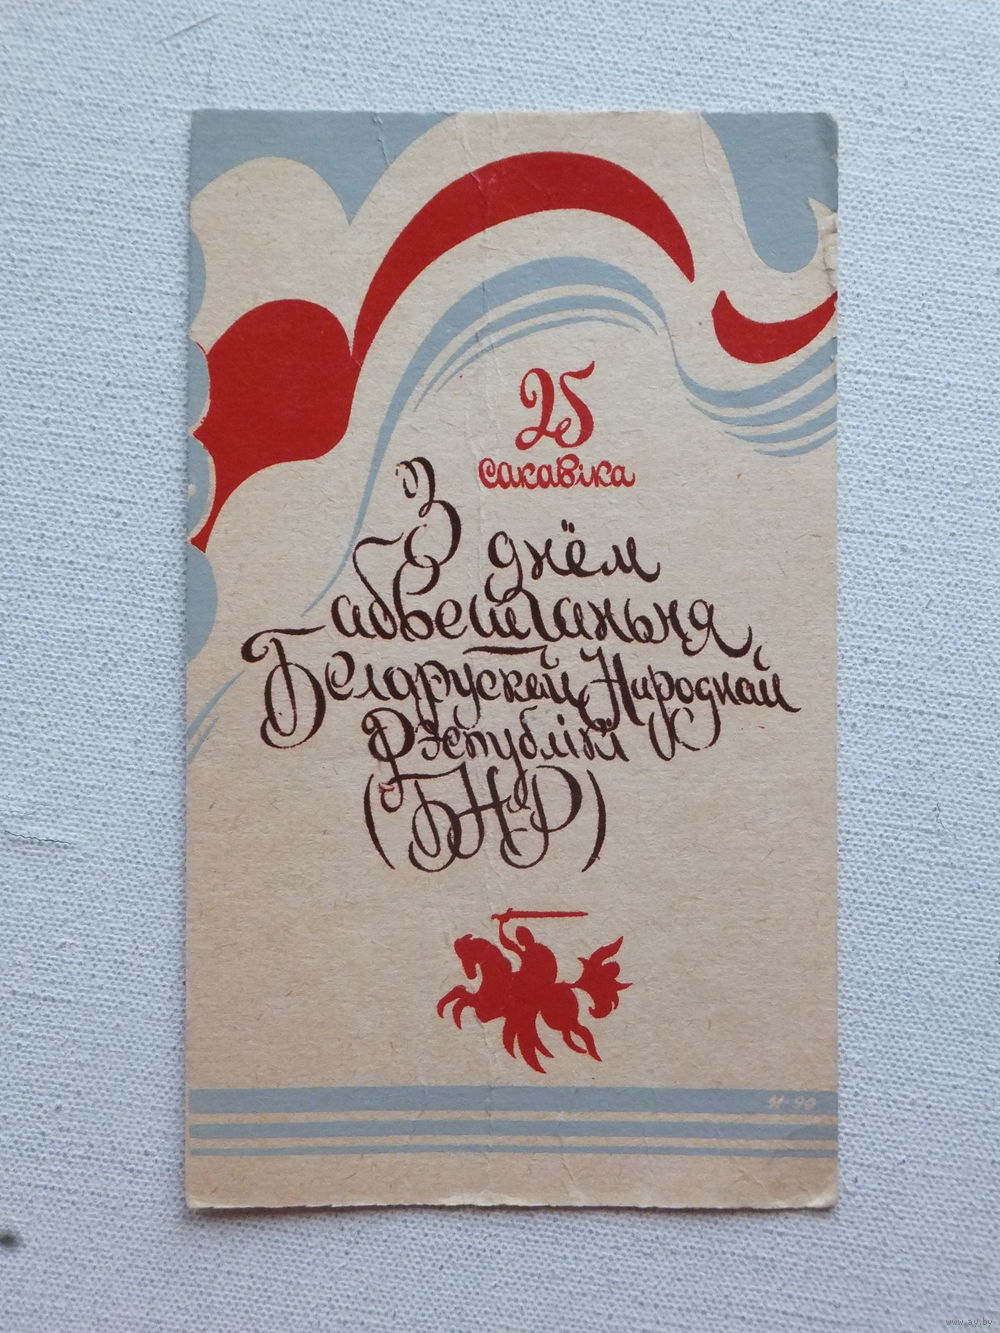 25
сакавіка
З днём
абвешчаньня
Беларускай Народнай
Рэспублікі
(БНР)
И-90
www.ay.by